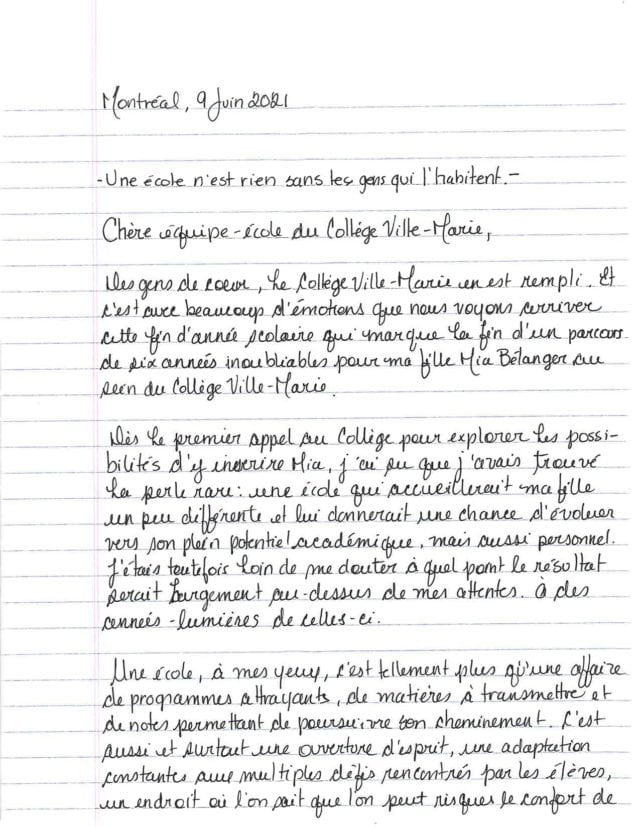 Montréal, 9 Juin 2021
- Une école n'est rien sans les gens qui l'habitent. -
Chère équipe-école du Collège Ville-Marie,
Des gens de coeur, le Collège Ville-Marie en est rempli. Et
c'est avec beaucoup d'émotions que nous voyons arriver
cette fin d'année scolaire qui marque la fin d'un parcours
de six années inoubliables pour ma fille Mia Bélanger au
sein du Collège Ville-Marie.
Dès le premier appel au Collège pour explorer les possi-
bilités d'y inscrire Mia, j'ai su que j'avais trouvé
la perle rare : une école qui accueillerait ma fille
un peu différente et lui donnerait une chance d'évoluer
vers son plein potentiel académique, mais aussi personnel.
J'étais toutefois loin de me douter à quel point le résultat
serait largement au-dessus de mes attentes. À des
années-lumières de celles-ci.
Une école, à mes yeux, c'est tellement plus qu'une affaire
de programmes attrayants, de matières à transmettre et
de notes permettant de poursuivre son cheminement. C'est
aussi et surtout une ouverture d'esprit, une adaptation
constantes aux multiples défis rencontrés par les élèves,
un endroit où l'on sait que l'on peut risques le confort de